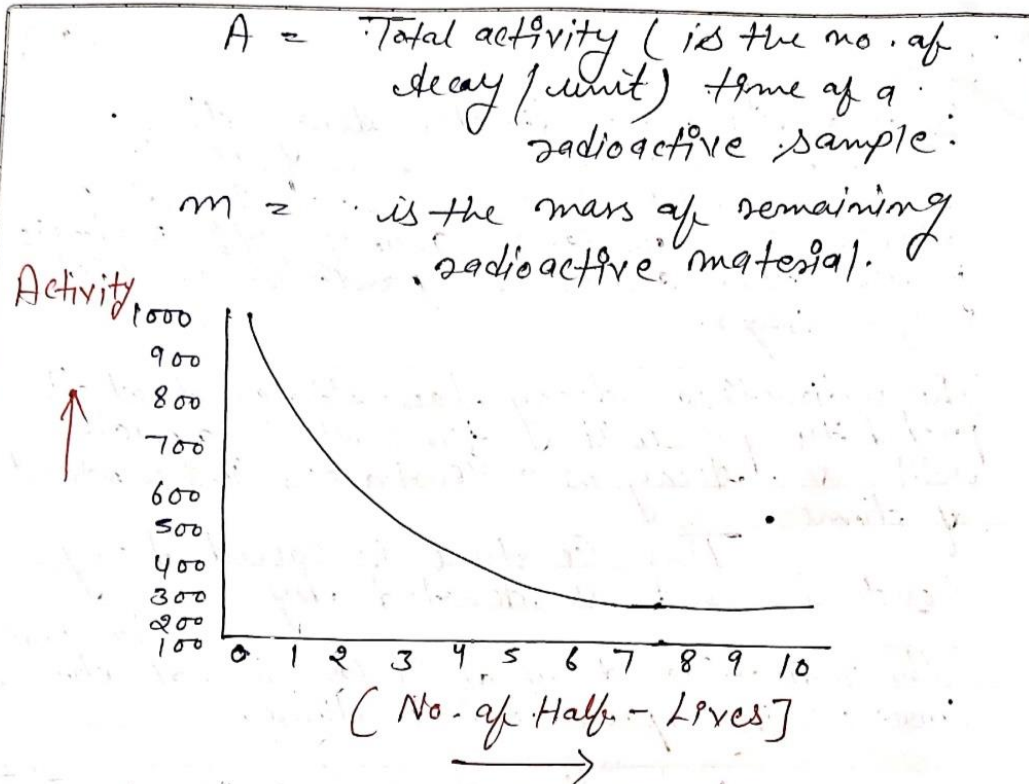 A = Total activity ( is the no. of
decay / unit) time of a
radioactive sample.
m = is the mass of remaining
radioactive material.
Activity
1000
900
800
700
600
500
400
300
200
100
0 1 2 3 4 5 6 7 8 9 10
( No. of Half - Lives ]